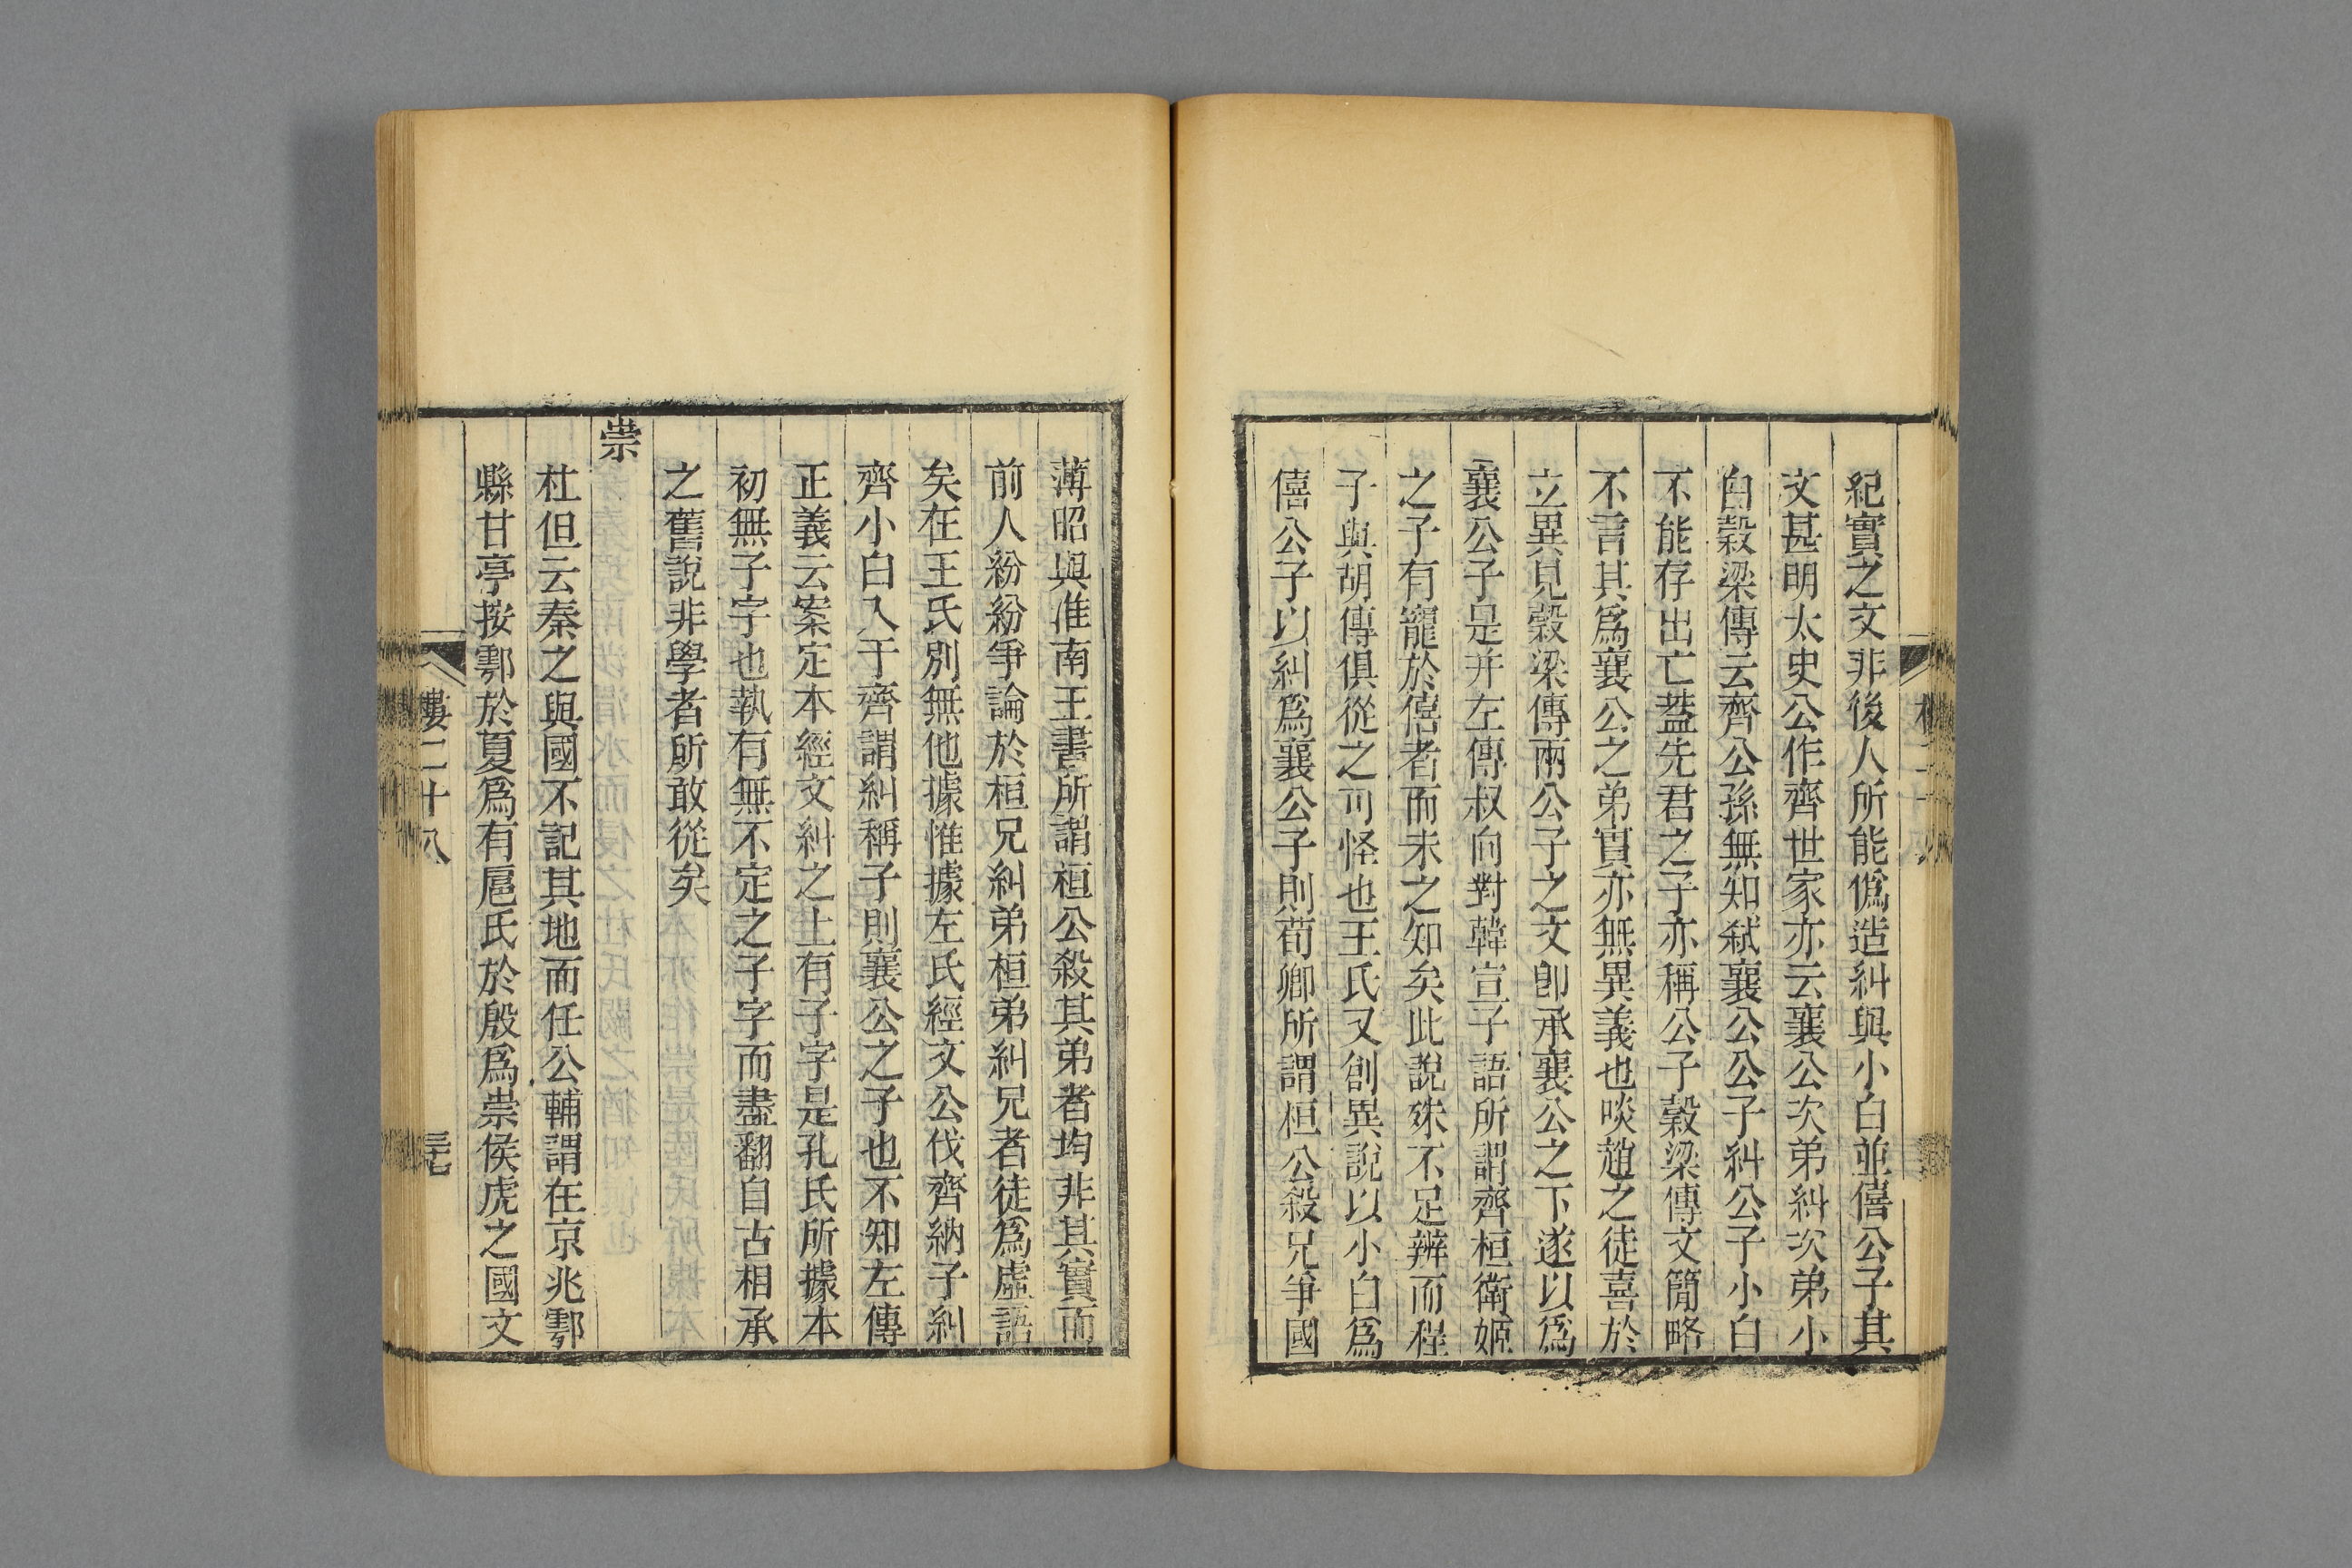 紀實之文非後人所能僞造糾與小白並僖公子其
文甚明太史公作齊世家亦云襄公次弟糾次弟小
白穀梁傳云齊公孫無知弑襄公公子糾公子小白
不能存出亡葢先君之子亦稱公子穀梁傳文簡略
不言其爲襄公之弟實亦無異義也啖趙之徒喜於
立異見穀梁傳兩公子之文卽承襄公之下遂以爲
襄公子是并左傳叔向對韓宣子語所謂齊桓衞姬
之子有寵於僖者而未之知矣此說殊不足辨而程
子與胡傳俱從之可怪也王氏又創異說以小白爲
僖公子以糾爲襄公子則荀卿所謂桓公殺兄爭國
薄昭與淮南王書所謂桓公殺其弟者均非其實而
前人紛紛爭論於桓兄糾弟桓弟糾兄者徒爲虛語
矣在王氏別無他據惟據左氏經文公伐齊納子糾
齊小白入于齊謂糾稱子則襄公之子也不知左傳
正義云案定本經文糾之上有子字是孔氏所據本
初無子字也執有無不定之子字而盡翻自古相承
之舊說非學者所敢從矣
崇
杜但云秦之與國不記其地而任公輔謂在京兆鄠
縣甘亭按鄠於夏爲有扈氏於殷爲崇侯虎之國文
樓二十八
三七